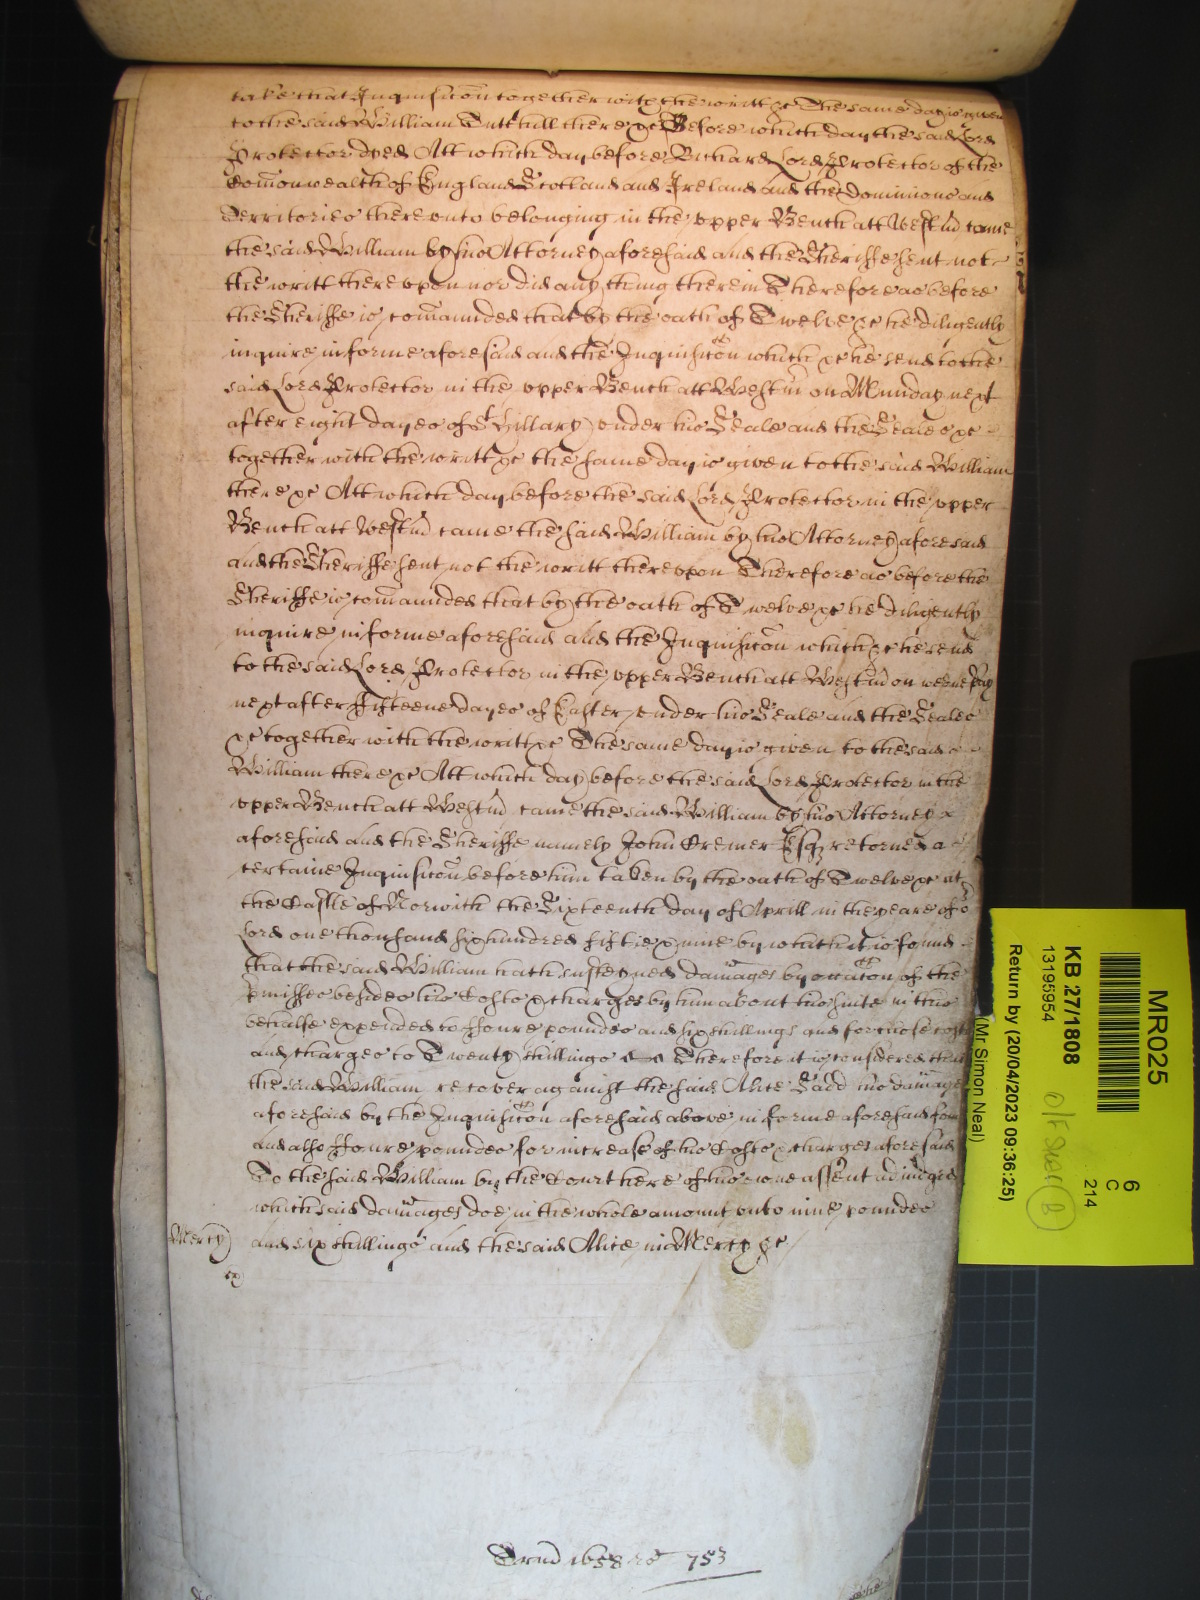 take that Inquisicon together with the writt &c The same day is given
to the said William Tutthill there &c Before which day the said Lord
Protector dyed Att which day before Richard Lord Protector of the
Comonwealth of England Scotland and Ireland and the Dominions and
Territories thereunto belonging in the upper Bench att Westm came
the said William by his Attorney aforesaid and the Sheriffe sent not
the writt thereupon nor did any thing therein Therefore as before
the Sheriffe is comaunded that by the oath of Twelve &c he diligently
inquire in forme aforesaid and the Inquisicon which &c he send to the
said Lord Protector in the upper Bench att Westm on Munday next
after eight dayes of St Hillary under his Seale and the Seales &c
together with the writt &c the same day is given to the said William
there &c Att which day before the said Lord Protector in the upper
Bench att Westm came the said William by his Attorney aforesaid
and the Sheriffe sent not the writt thereupon Therefore as before the
Sheriffe is comaunded that by the oath of Twelve &c he diligently
inquire in forme aforesaid and the Inquisicon which &c he send
to the said Lord Protector in the upper Bench att Westm on
next after fifteene dayes of Easter under his Seale and the Seales
&c together with the writt &c The same day is given to the said
William there &c Att which day before the said Lord Protector in the
upper Bench att Westm came the said William by his Attorney
aforesaid and the Sheriffe namely John Cremer Esq retorned a
certaine Inquisicon before him taken by the oath of Twelve &c at
the Castle of Norwich the Sixteenth day of Aprill in the yeare of o
Lord one thousand six hundred fiftie & nine by which it is found
that the said William hath susteyned damages by occacon of the
pmisses besides his Costs & charges by him about his suite in this
behalfe expended to Foure poundes and six shillings and for those costs
and charges to Twenty shillings Therefore it is considered that
the said William recover against the said Alice Ladd his damages
aforesaid by the Inquisicon aforesaid above in forme aforesaid found
and also Foure poundes for increase of his Costs & charges aforesaid
To the said William by the Court here of his owne assent adiudged
which said damages doe in the whole amount unto nine poundes
and six shillings and the said Alice in Mercy &c
Mercy
Trin 1658 ro 753
MR025
6
C
214
KB 27/1808
13195954
Return by (20/04/2023 09:36:25)
(Mr Simon Neal)